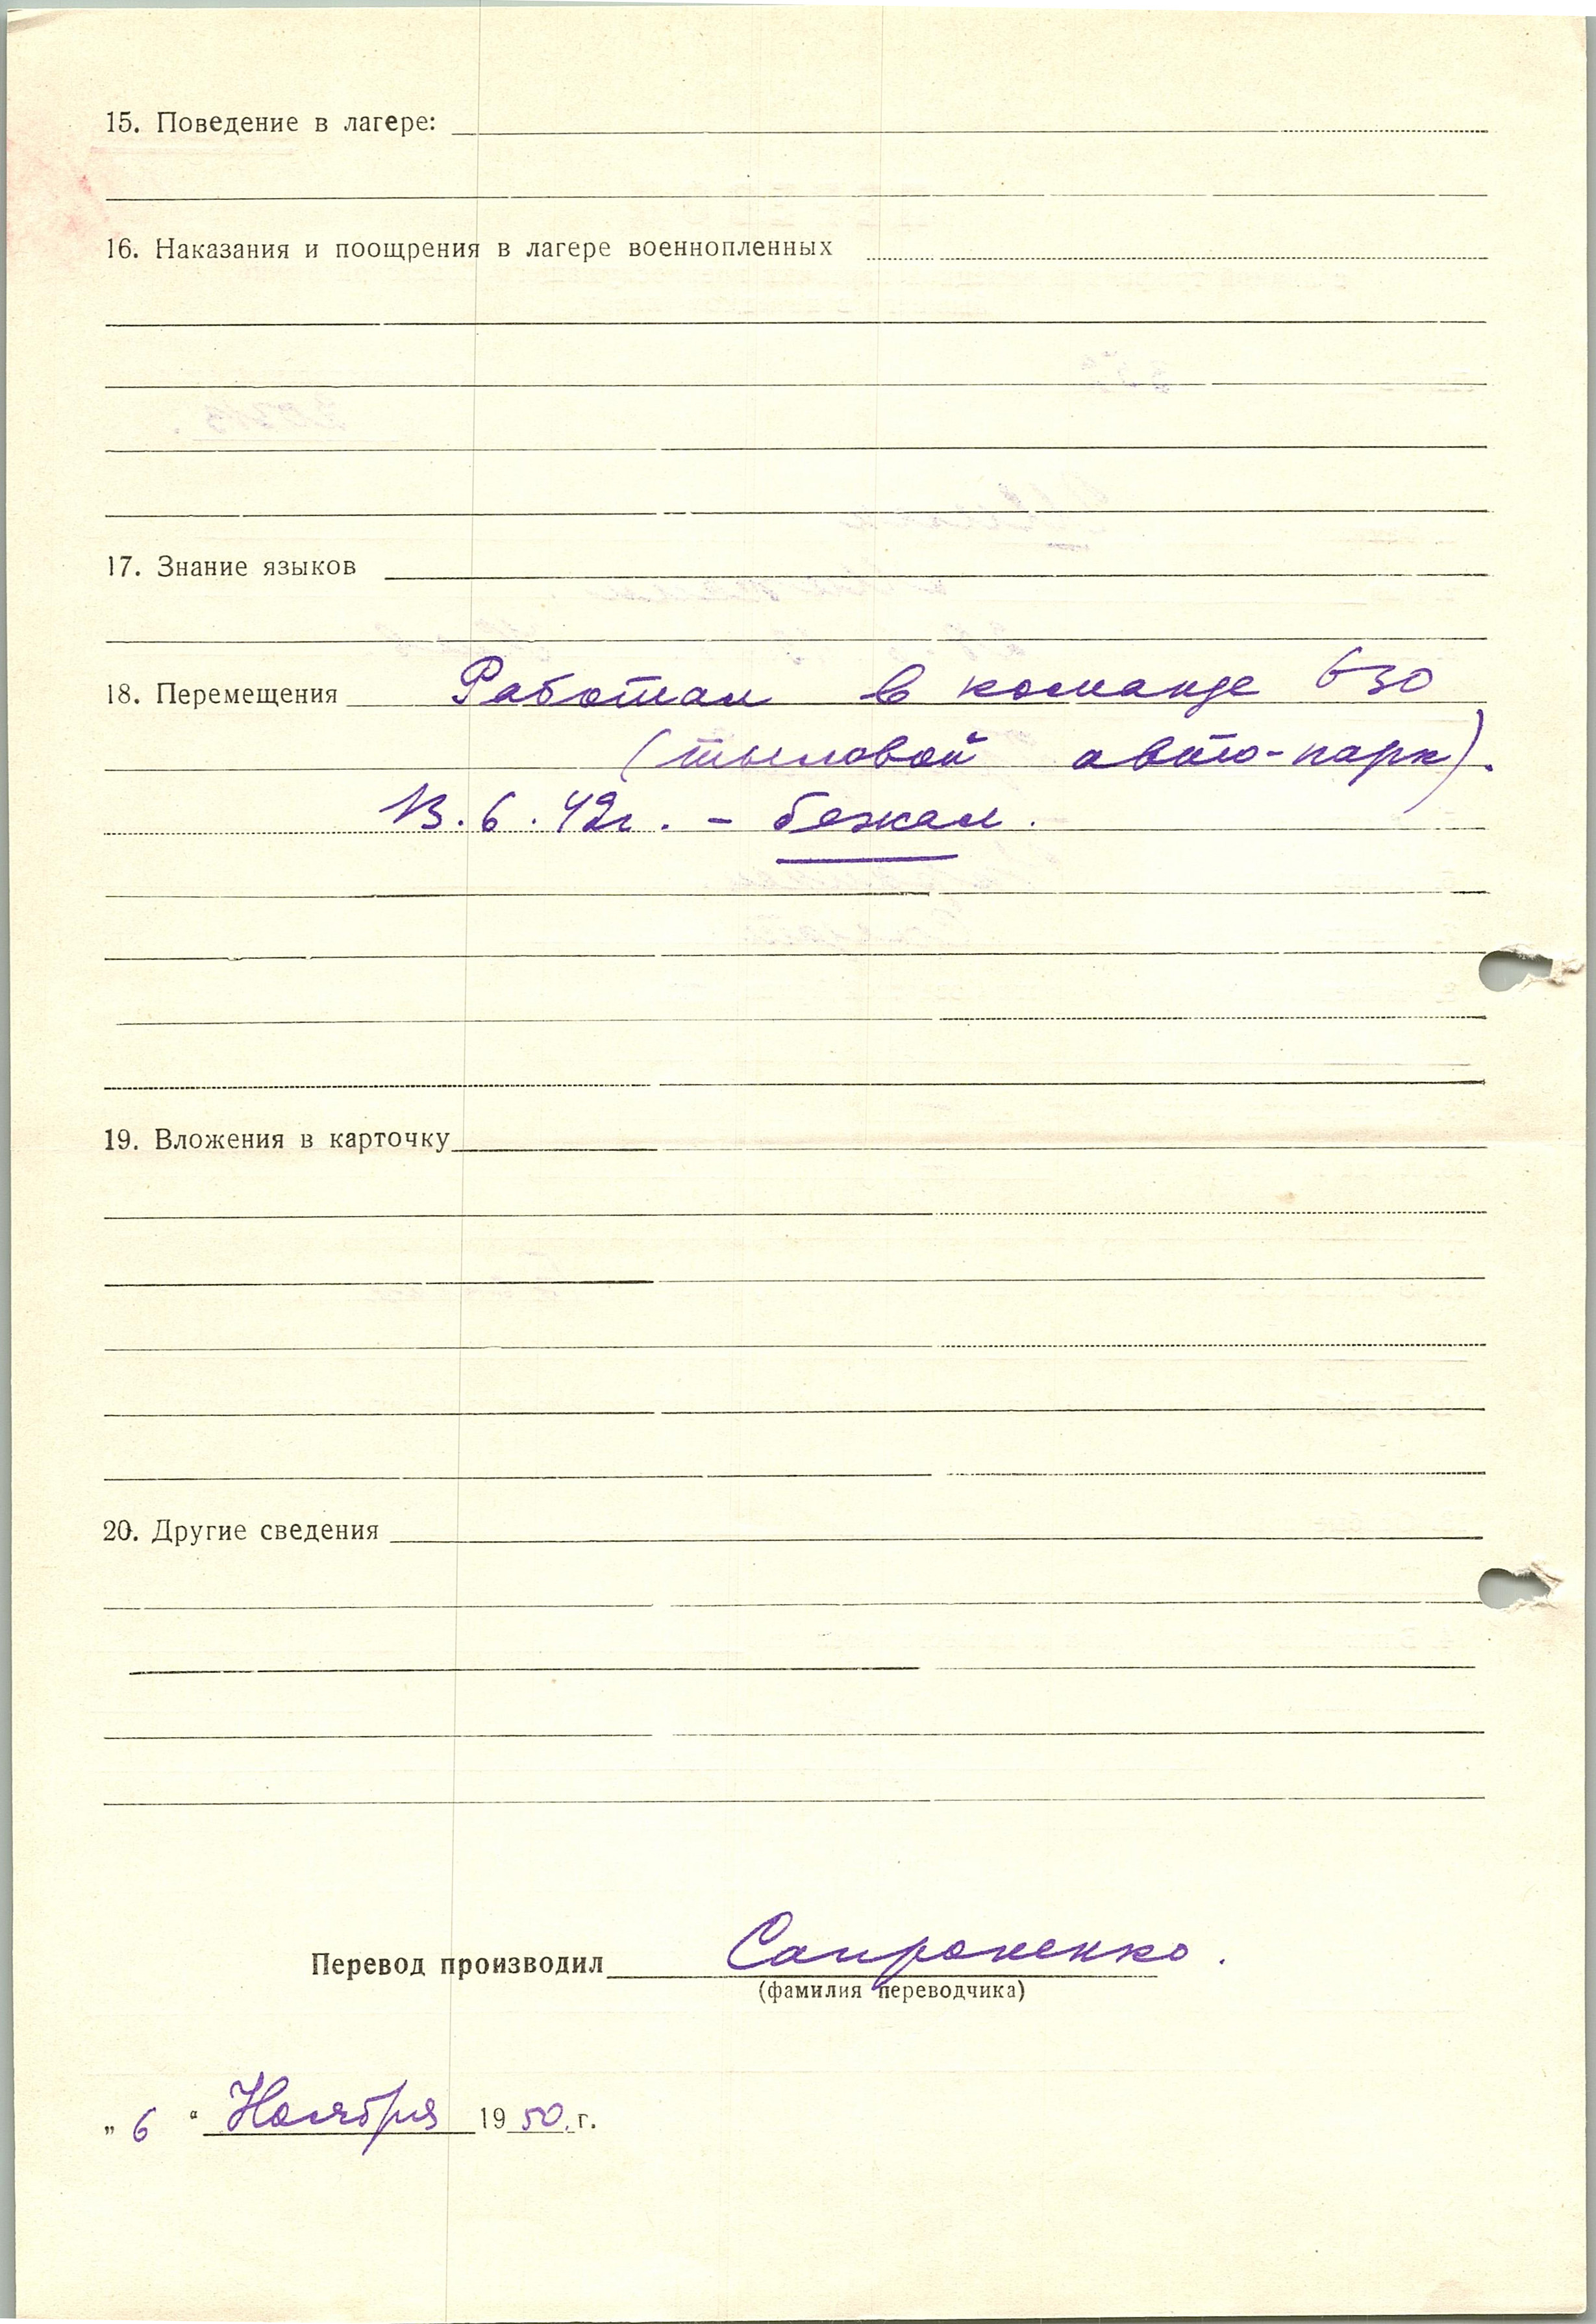 15. Поведение в лагере:
16. Наказания и поощрения в лагере военнопленных
17. Знание языков
18. Перемещения Работал в команде 630
(тыловой авто-парк).
13.6.42г. - бежал.
19. Вложения в карточку
20. Другие сведения
Перевод производил Сапроненко.
(фамилия переводчика)
„ 6 “ Ноября 1950 г.